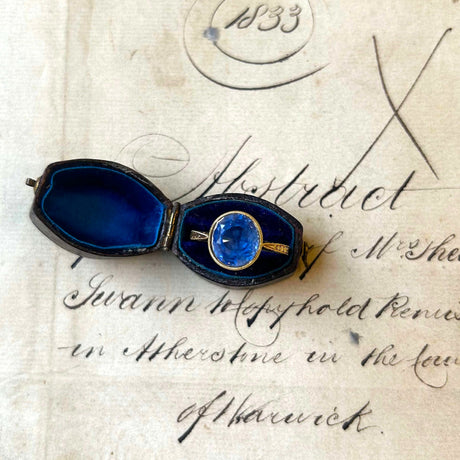 1833
Abstract
of Mrs
Swann to Copyhold
in Atherstone in the
of Warwick.